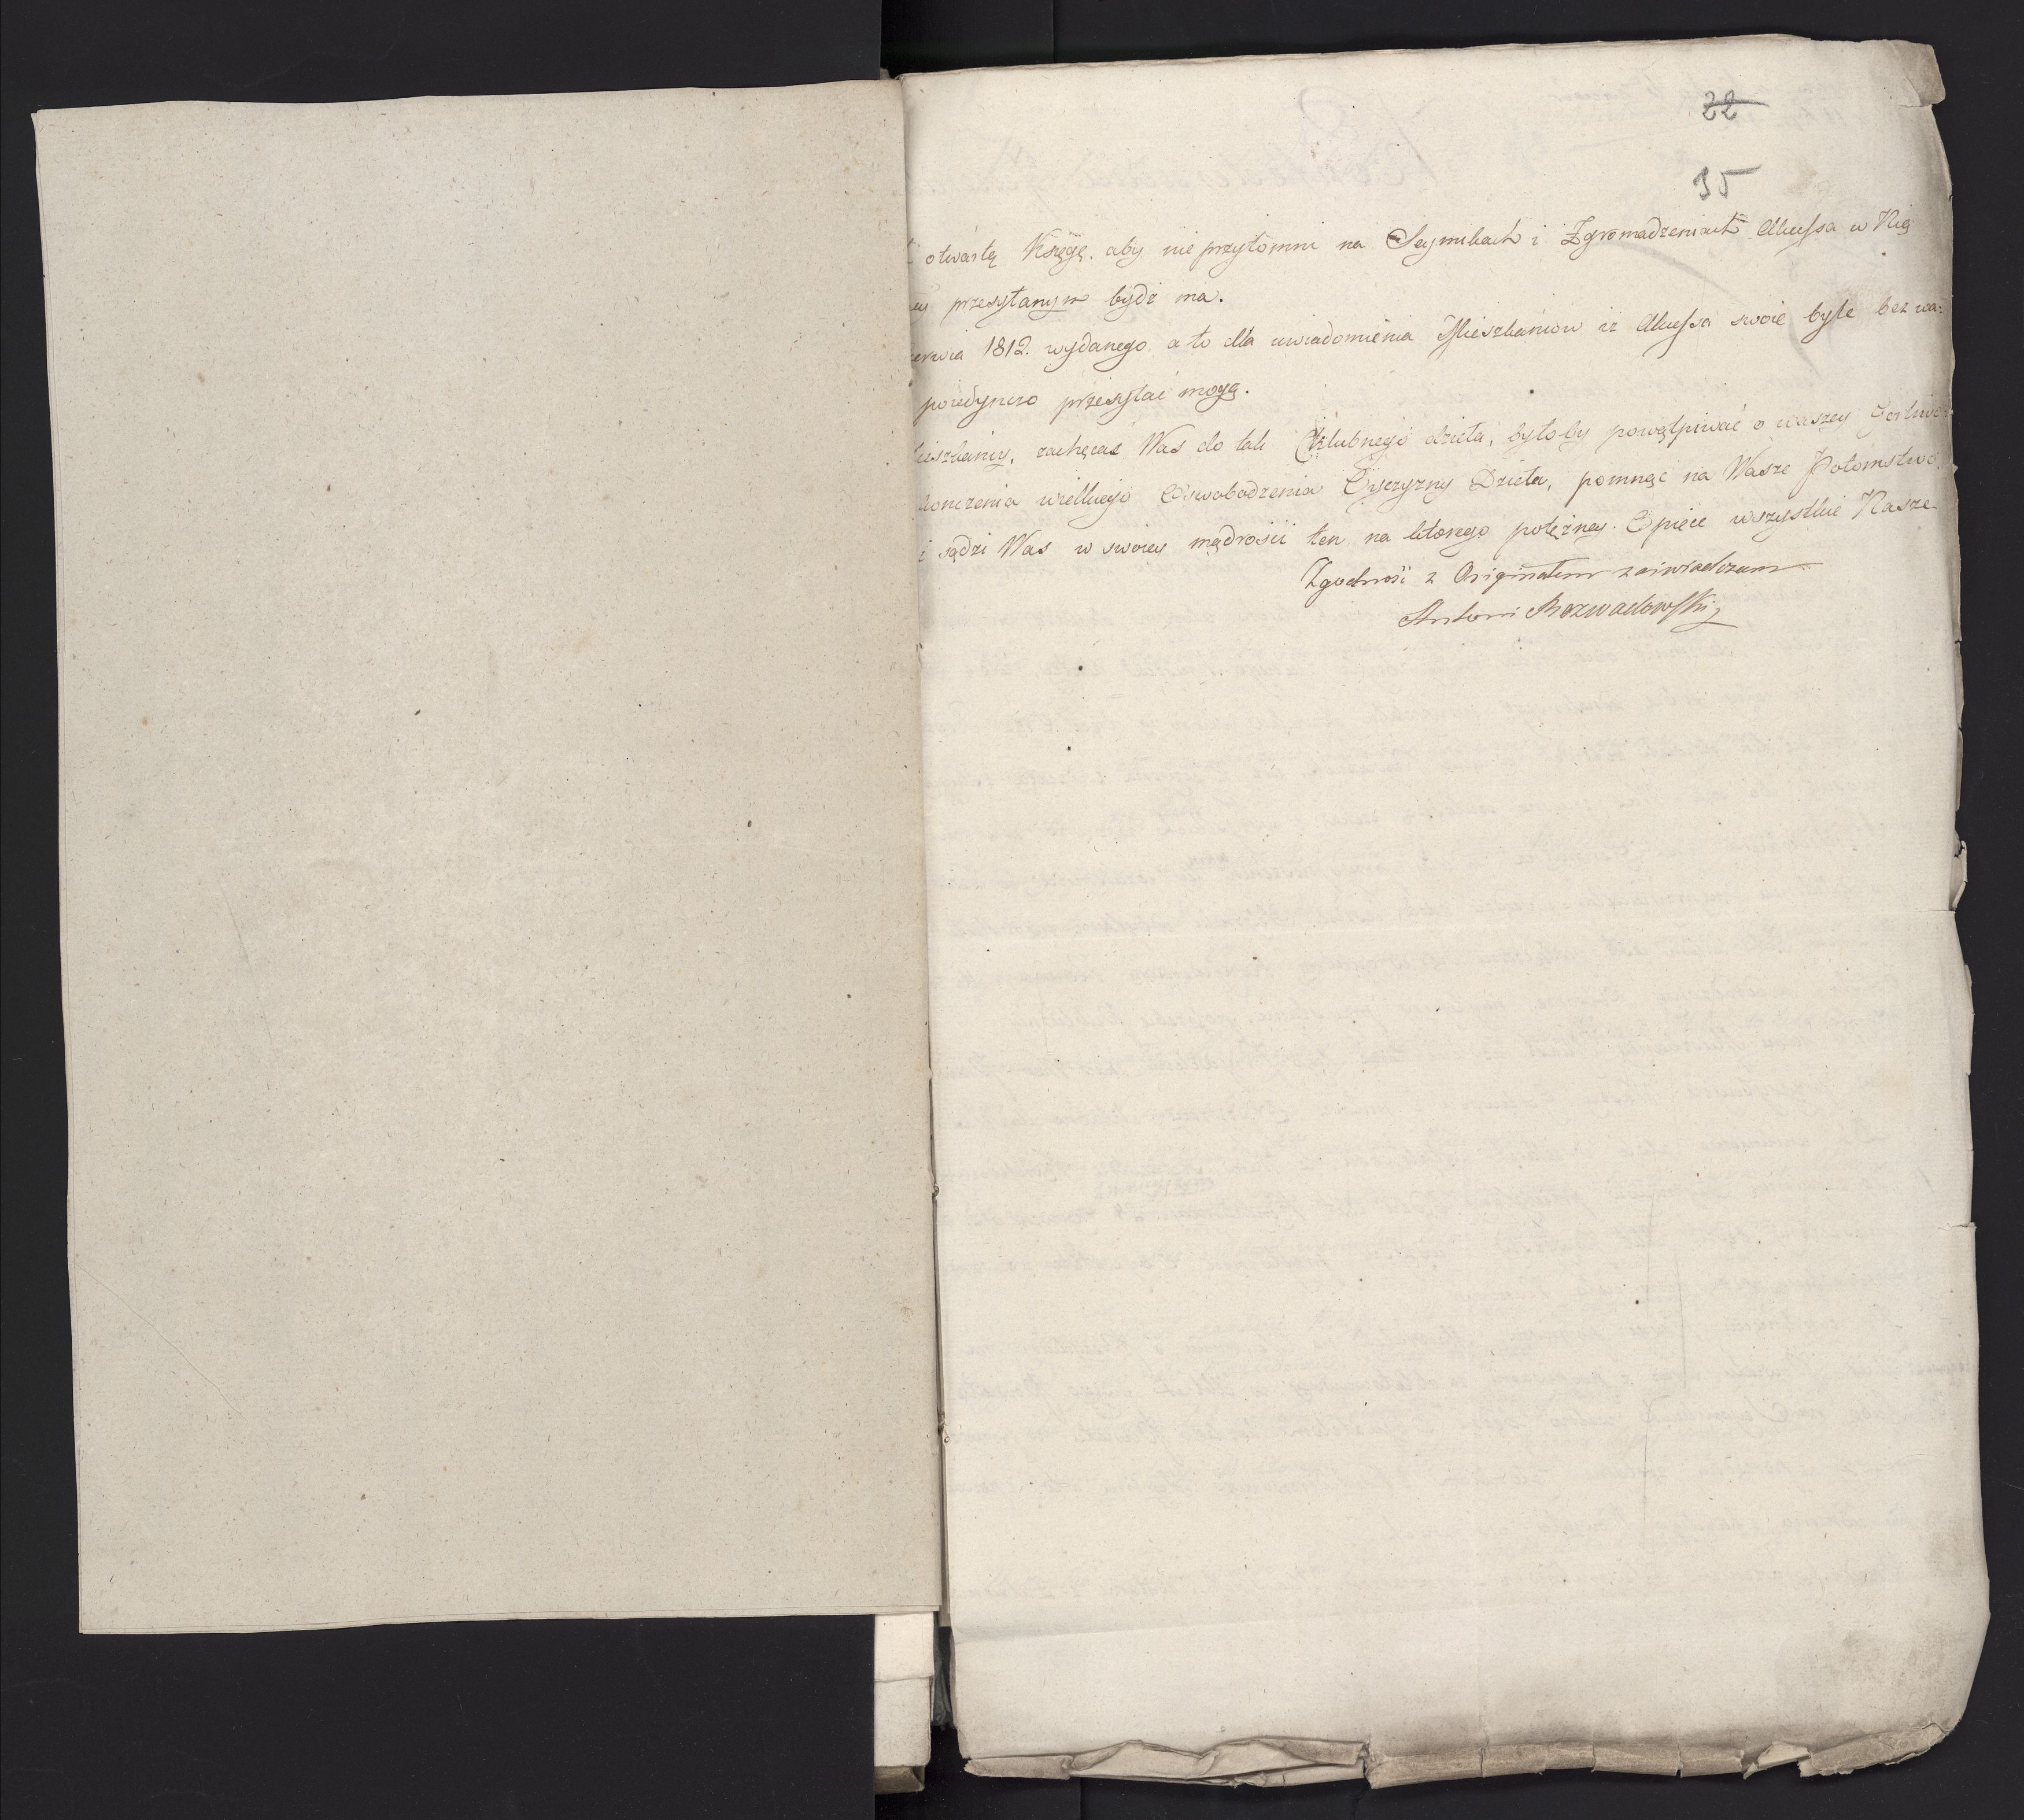 22
35
otwartą Księgę, aby nie przytomni na Seymikach i Zgromadzeniach Akcessa w Nią
przesyłanym bydź ma.
1812. wydanego, a to dla uwiadomienia Mieszkańcow iż Akcessa swoie byle bez wa=
poiedynczo przesyłać mogą.
zachęcać Was do tak Chlubnego dzieła, byłoby powątpiwać o waszey
wielkiego Oswobodzenia Oyczyzny Dzieła, pomnąc na Wasze Potomstwo,
i sądzi Was w swoiey mądrości ten, na ktorego potężney Opiece wszystkie Nasze
Zgodność z Originałem zaświadczam
Antoni Rozwadowski